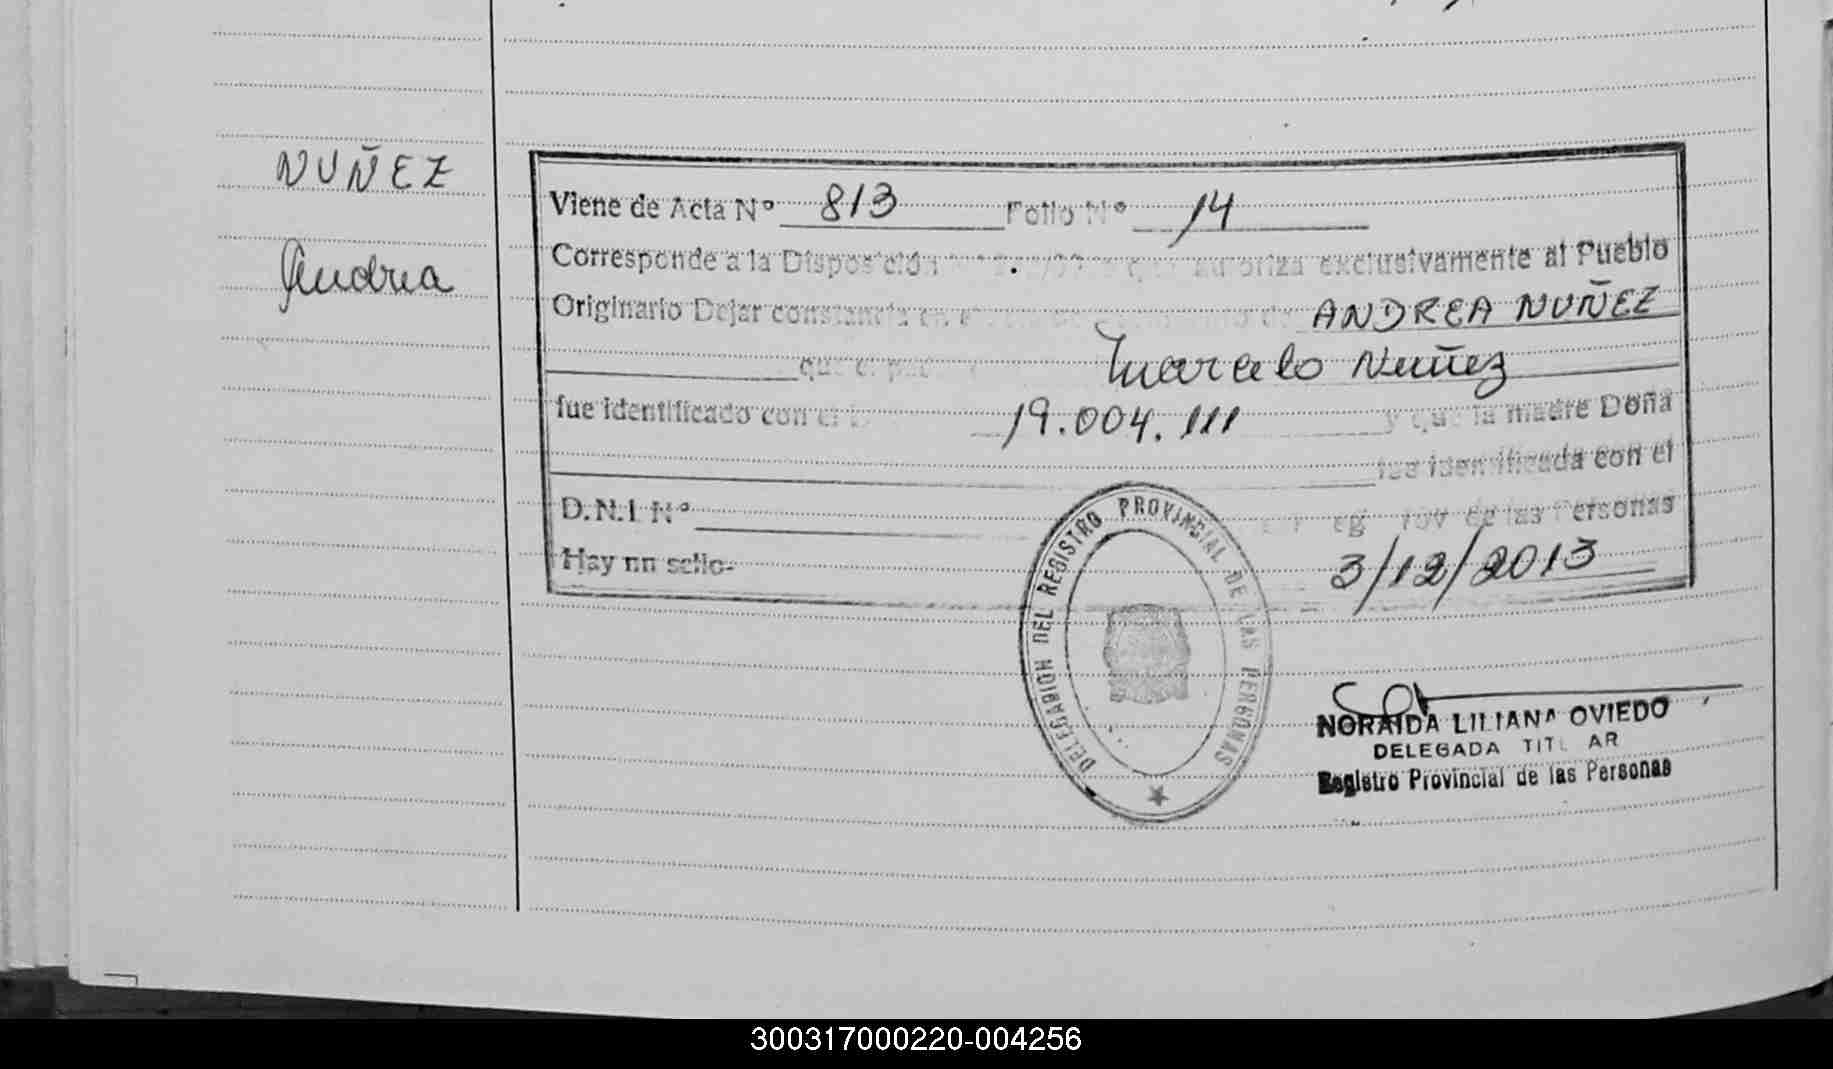 NUÑEZ
Andrea
Viene de Acta Nº 813 Folio Nº 14
Corresponde a la Disposición autoriza exclusivamente al Pueblo
Originario Dejar constancia en el de ANDREA NUÑEZ
que el padre Marcelo Nuñez
fue identificado con el 19.004.111 y que la madre Doña
fue identificada con el
D.N.I Nº Reg Prov de las Personas
Hay un sello- 3/12/2013
DELEGACION DEL REGISTRO PROVINCIAL DE LAS PERSONAS
NORAIDA LILIANA OVIEDO
DELEGADA TITULAR
Registro Provincial de las Personas
300317000220-004256